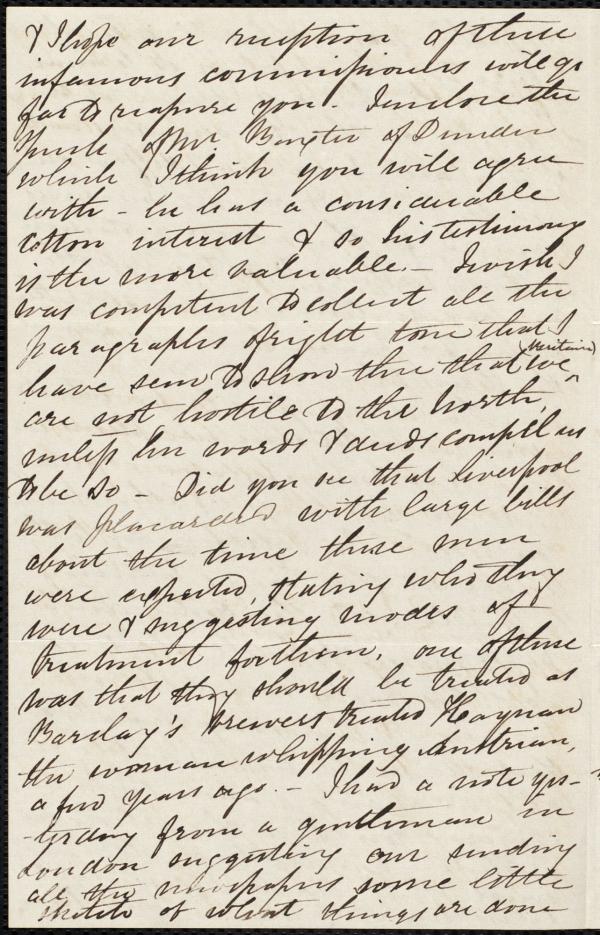 & I hope our reception of these
infamous commissioners will go
far to reassure you. I enclose the
speech of Mr. Baxter of Dundee
which I think you will agree
with - he has a considerable
cotton interest & so his testimony
is the more valuable. - I wish I
was competent to collect all the
paragraphs of right tone that I
have seen to show thee that we
are not hostile to the North,
unless her words & deeds compel us
to be so - Did you see that Liverpool
was placarded with large bills
about the time these men
were expected, stating who they
were & suggesting modes of
treatment for them, one of these
was that they should be treated as
Barclay's brewers treated Haynau
the woman whipping Austrian,
a few years ago. - I had a note yes-
-terday from a gentleman in
London suggesting our sending
all the newspapers some little
sketch of what things are done